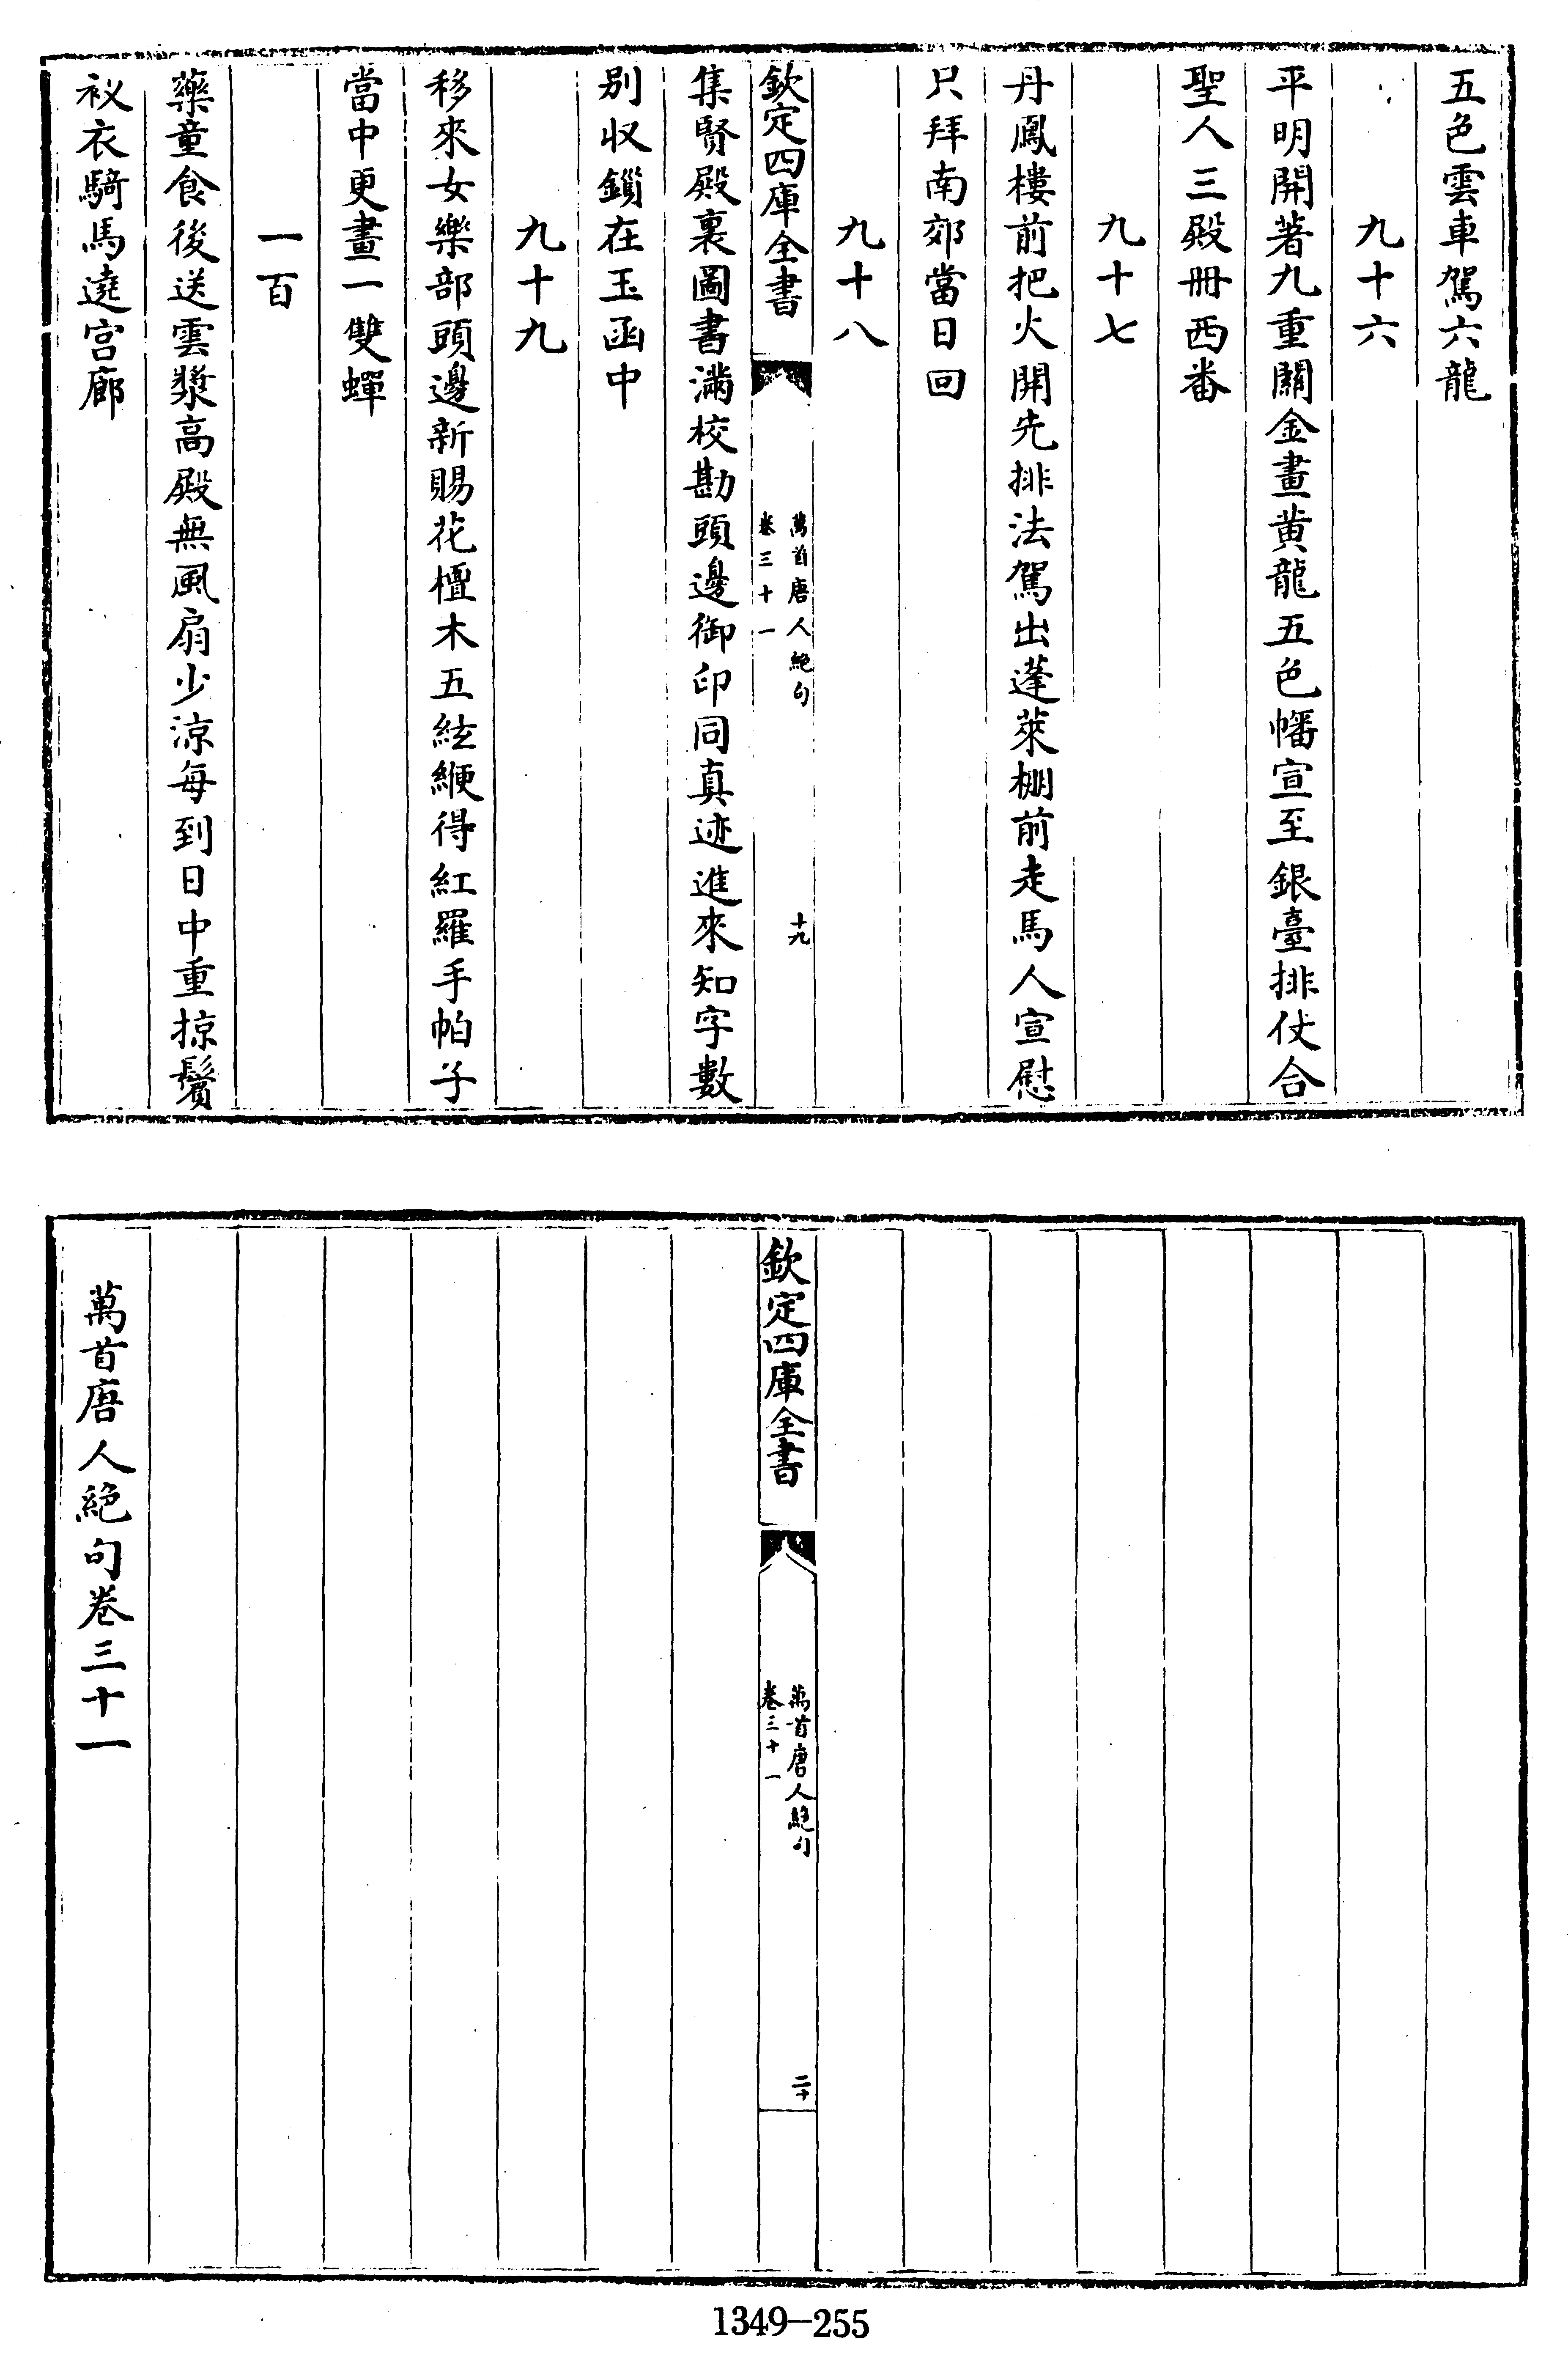 五色雲車駕六龍
九十六
平明開著九重關金畫黄龍五色幡宣至銀臺排仗合
聖人三殿冊西番
九十七
丹鳳樓前把火開先排法駕出蓬萊棚前走馬人宣慰
只拜南郊當日回
九十八
欽定四庫全書
萬首唐人絶句
卷三十一
十九
集賢殿裏圖書滿校勘頭邊御印同真迹進來知字數
别収鎻在玉函中
九十九
移來女樂部頭邊新賜花檀木五絃緶得紅羅手帕子
當中更畫一雙蟬
一百
藥童食後送雲漿高殿無風扇少涼每到日中重掠鬢
衩衣騎馬遶宫廊
欽定四庫全書
萬首唐人絶句
卷三十一
二十
萬首唐人絶句卷三十一
1349-255